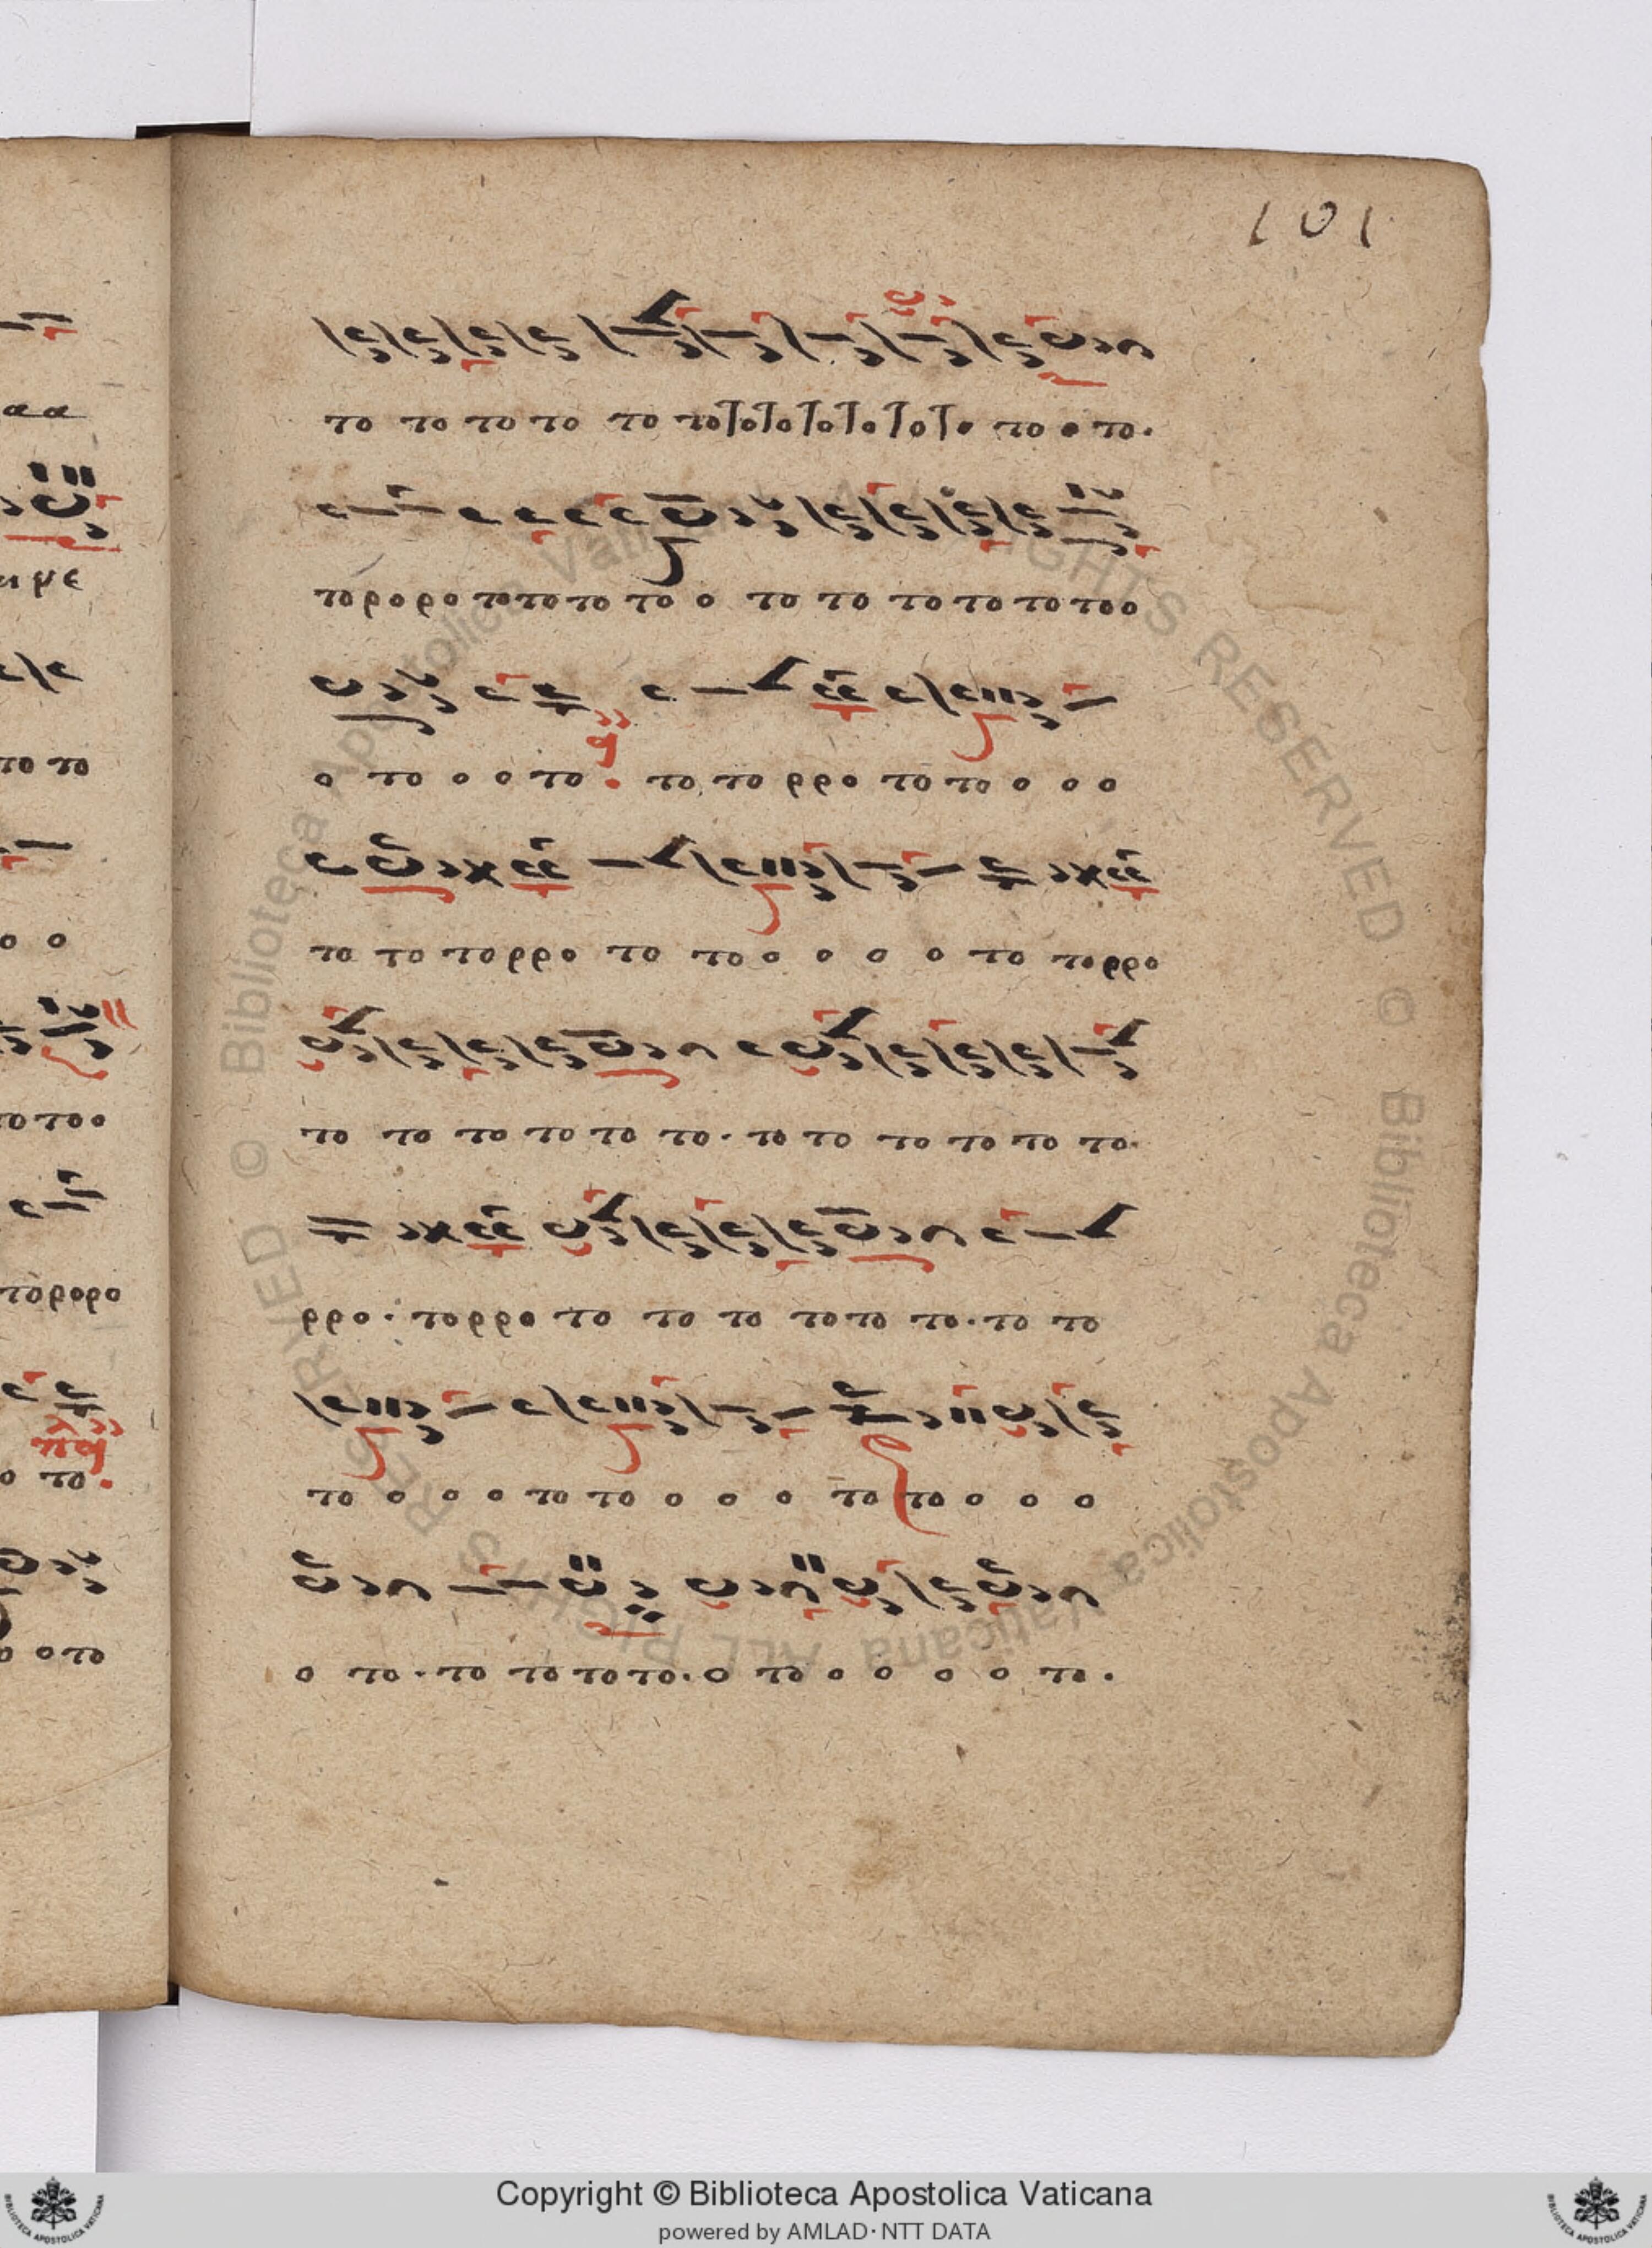 101
το το το το το τοτοτοτοτοτοτο το ο το.
τορορο τοτοτο το ο το το το το τοτοο
ο το ο ο το . το, το ρρο το το ο ο ο
το το τορρο το το ο ο ο ο το τορρο
το το το το το το. το το το το το το.
ρρο. τορρο το το το τοτο το. το το
το ο ο ο το το ο ο ο το το ο ο ο
ο το. το το τοτο. ο το ο ο ο ο το.
αα
με
το το
ο ο
το τοο
τορορο
ο το.
ο ο το
© Biblioteca Apostolica Vaticana ALL RIGHTS RESERVED
© Biblioteca Apostolica Vaticana ALL RIGHTS RESERVED
Copyright © Biblioteca Apostolica Vaticana
powered by AMLAD·NTT DATA
BIBLIOTECA APOSTOLICA VATICANA
BIBLIOTECA APOSTOLICA VATICANA